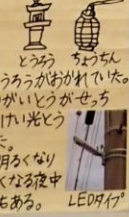 とうろう ちょうちん
うろうがおかれていた。
がいとうがせっち
けい光とう
た。
明るくなり
くなる夜中
もある。
LEDタイプ